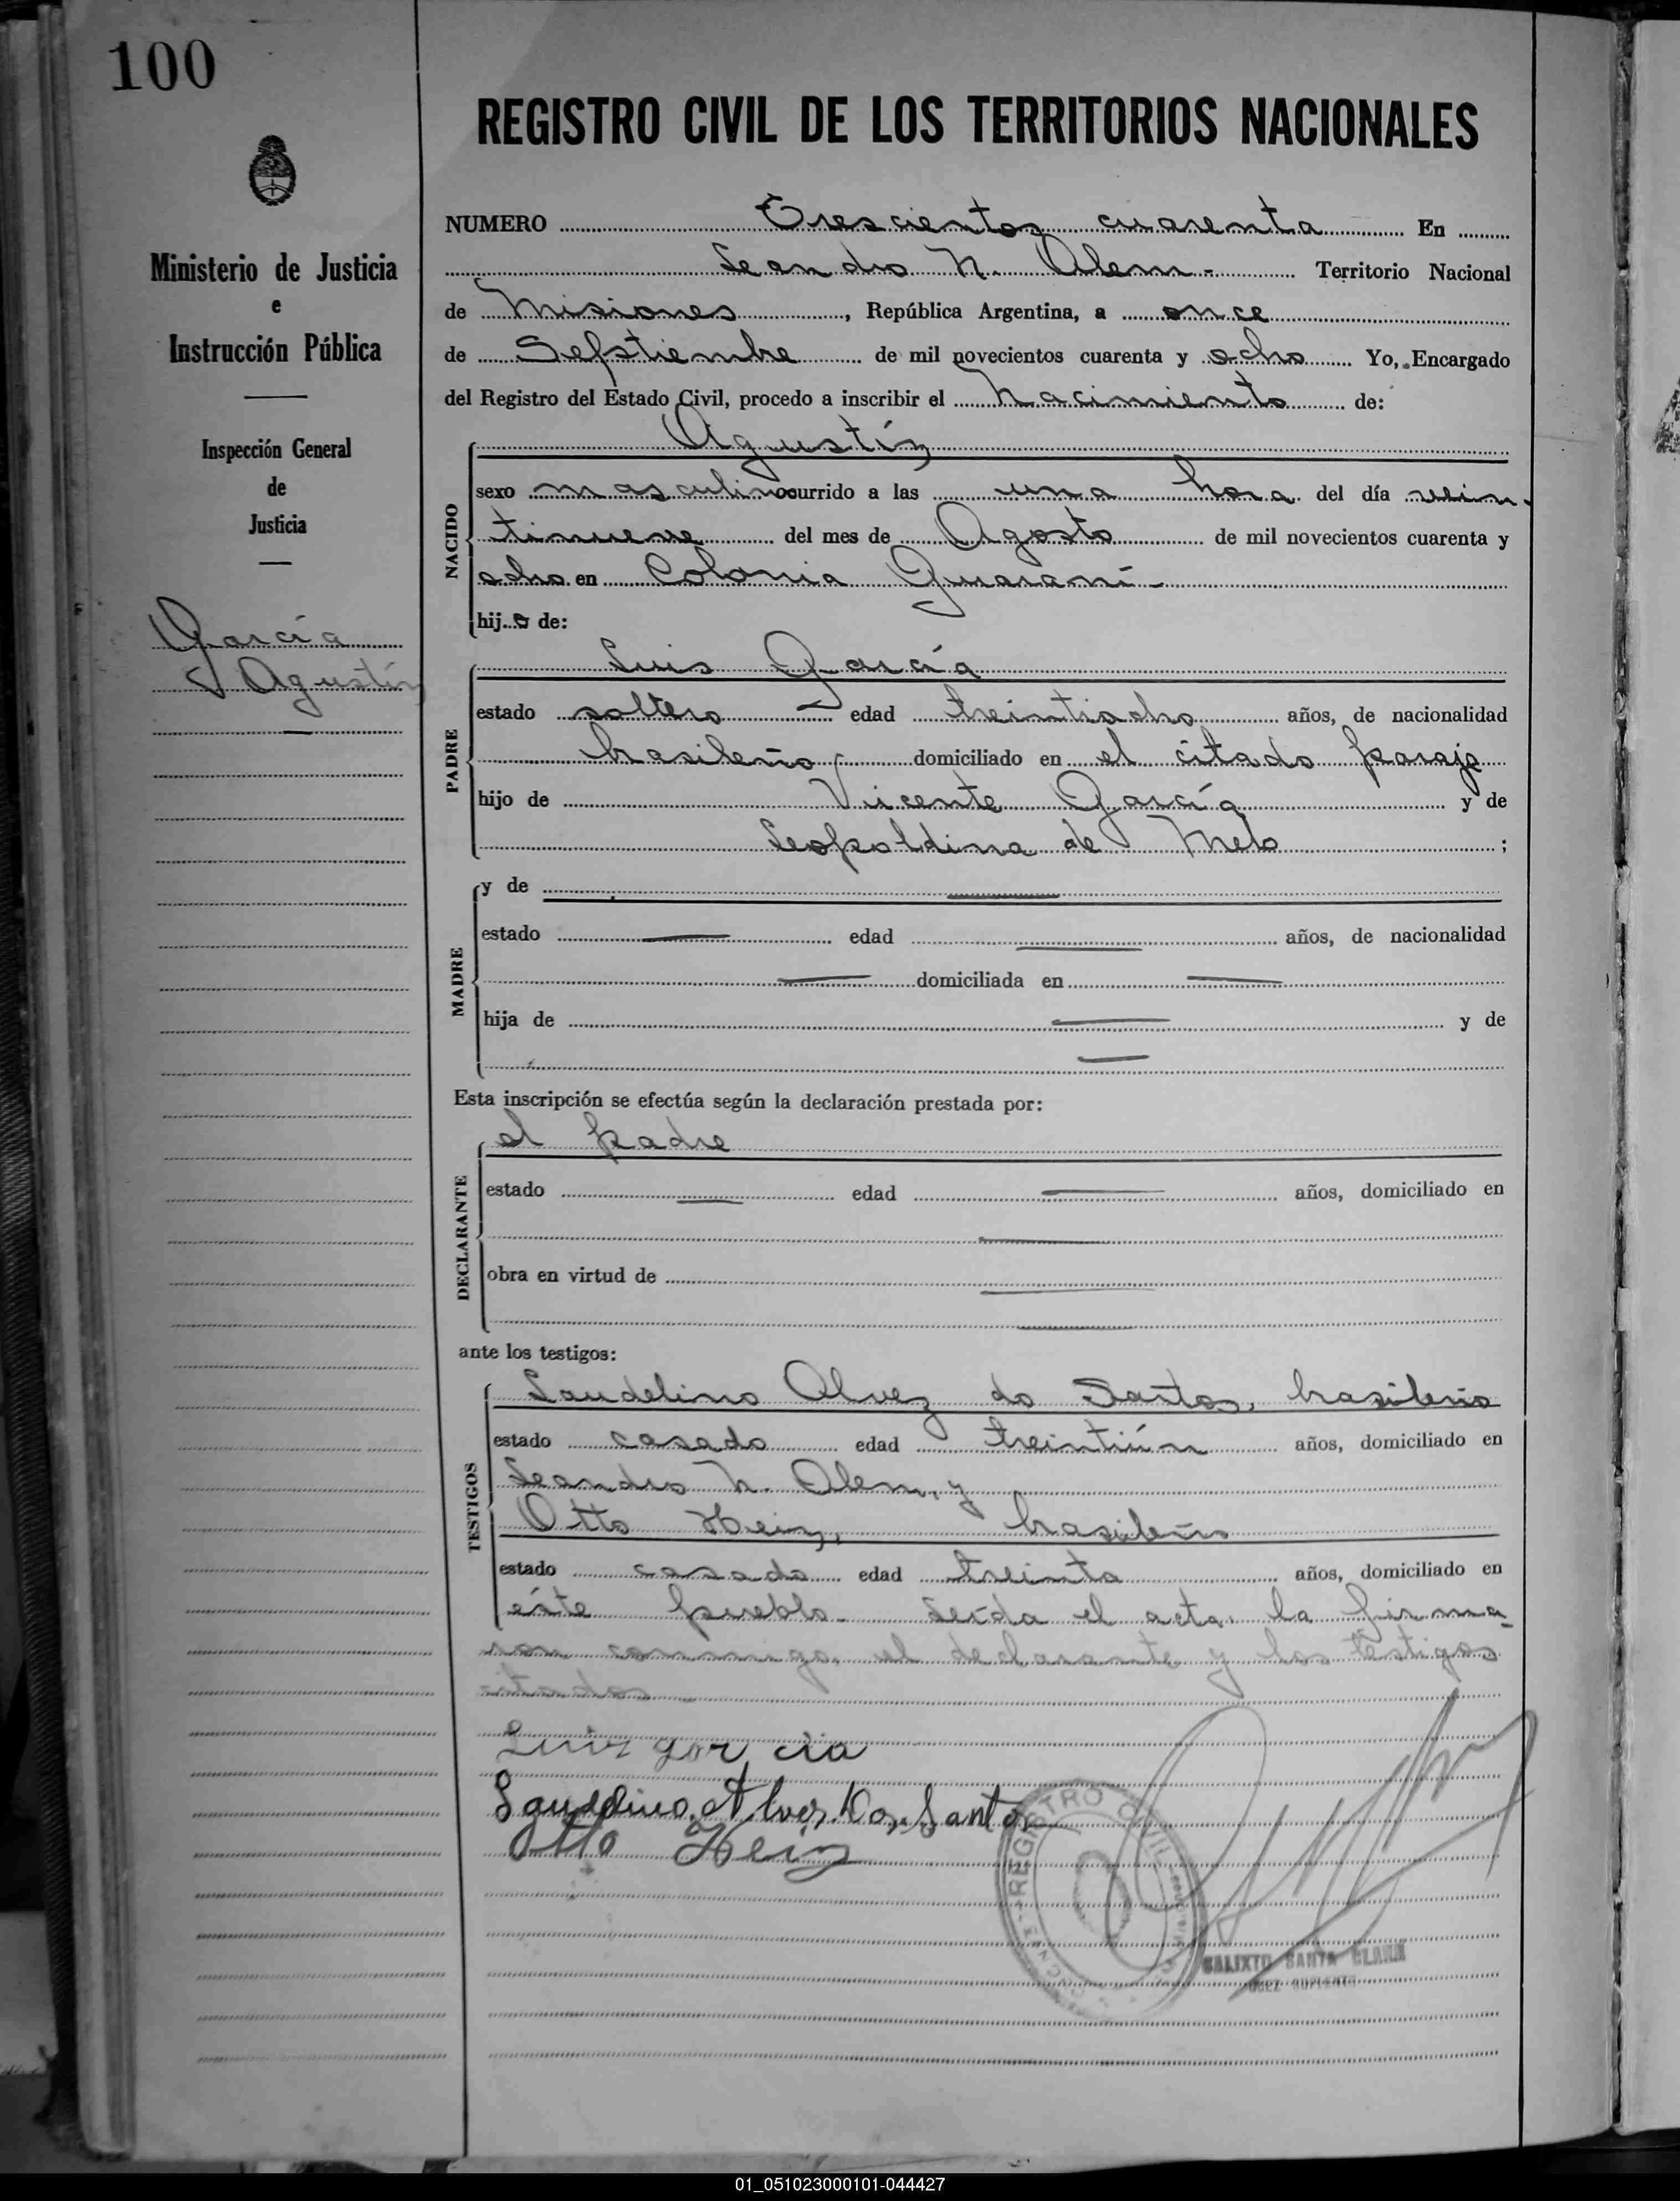 100
REGISTRO CIVIL DE LOS TERRITORIOS NACIONALES
Ministerio de Justicia
e
Instrucción Pública
Inspección General
de
Justicia
García
Agustín
NUMERO Trescientos cuarenta En
Leandro N. Alem - Territorio Nacional
de Misiones, República Argentina, a once
de Sepstiembre de mil novecientos cuarenta y ocho Yo, Encargado
del Registro del Estado Civil, procedo a inscribir el Nacimiento de:
NACIDO
Agustín
sexo masculino ocurrido a las una hora del día vein-
tinueve del mes de Agosto de mil novecientos cuarenta y
ocho en Colonia Guaraní -
hijo de:
PADRE
Luis García
estado soltero edad treintiocho años, de nacionalidad
brasileño domiciliado en el citado paraje
hijo de Vicente García y de
Leopoldina de Melo ;
MADRE
y de —
estado — edad — años, de nacionalidad
— domiciliada en —
hija de — y de
—
Esta inscripción se efectúa según la declaración prestada por:
DECLARANTE
el padre
estado — edad — años, domiciliado en
—
obra en virtud de —
—
ante los testigos:
TESTIGOS
Laudelino Alvez do Santos, brasileño
estado casado edad treintiún años, domiciliado en
Leandro N. Alem, y
Otto Heiz, brasileño
estado casado edad treinta años, domiciliado en
éste pueblo - Leída el acta, la firma-
ron conmigo, el declarante y los testigos
citados -
Luiz garcia
Laudelino Alves Dos Santos
Otto Heiz
REGISTRO CIVIL
CALIXTO SANTA CLARA
JUEZ SUPLENTE
01_051023000101-044427